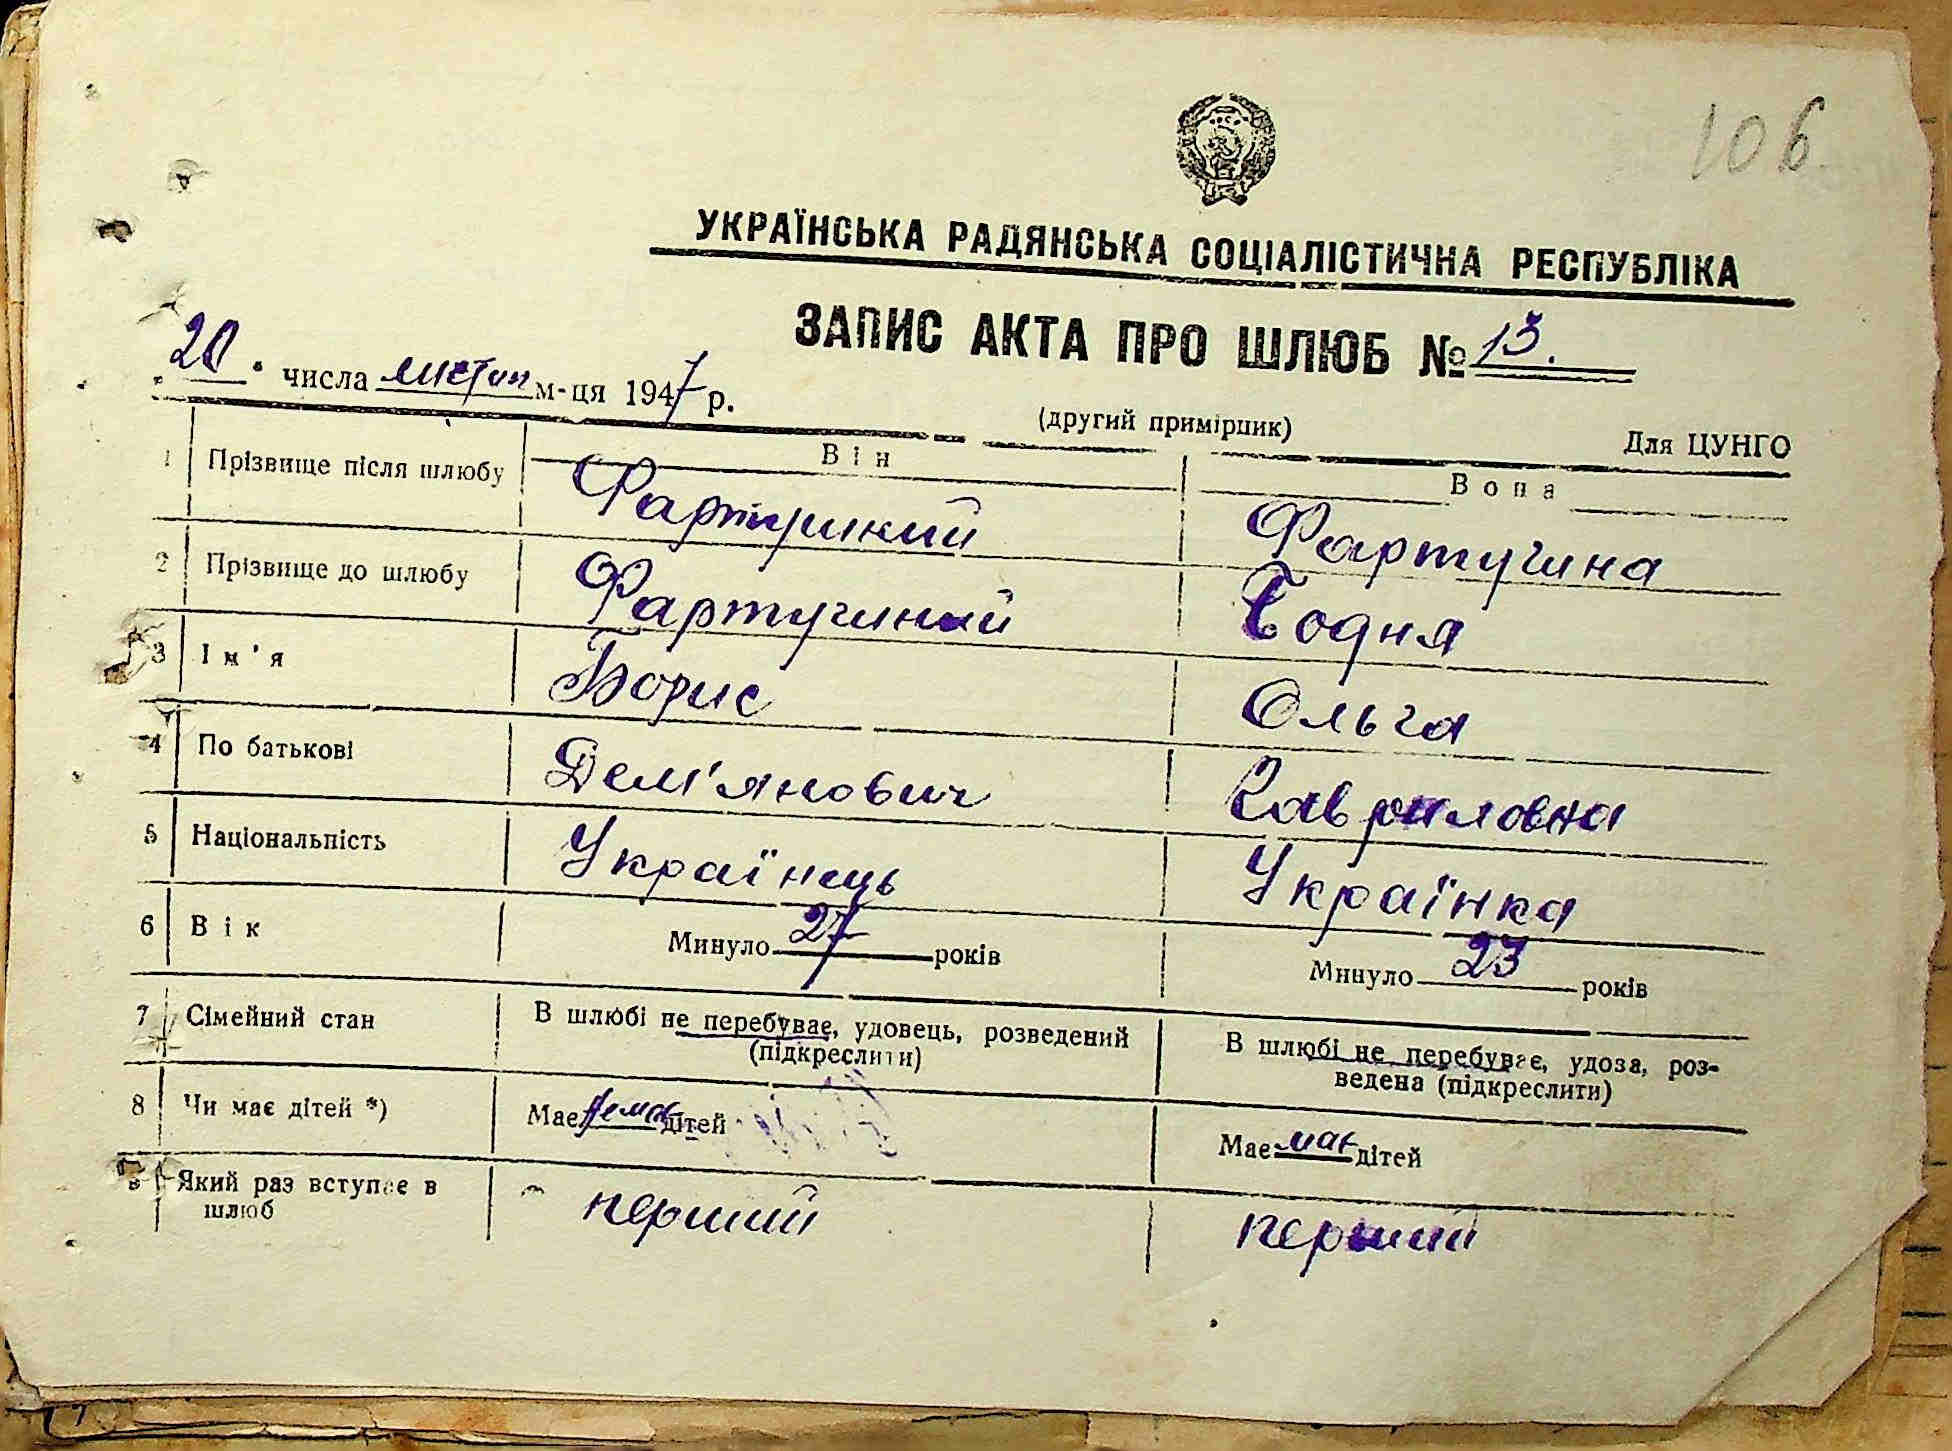 106
УКРАЇНСЬКА РАДЯНСЬКА СОЦІАЛІСТИЧНА РЕСПУБЛІКА
ЗАПИС АКТА ПРО ШЛЮБ № 13.
20 числа листоп м-ця 1947 р.
(другий примірник)
Для ЦУНГО
Він Вона
1 Прізвище після шлюбу Фартушний Фартушна
2 Прізвище до шлюбу Фартушний Бодня
3 Ім'я Борис Ольга
4 По батькові Дем'янович Гавриловна
5 Національність Українець Українка
6 Вік Минуло 27 років Минуло 23 років
7 Сімейний стан В шлюбі не перебуває, удовець, розведений (підкреслити) В шлюбі не перебуває, удова, роз-
ведена (підкреслити)
8 Чи має дітей *) Має немає дітей Має дітей
Який раз вступає в шлюб перший перший